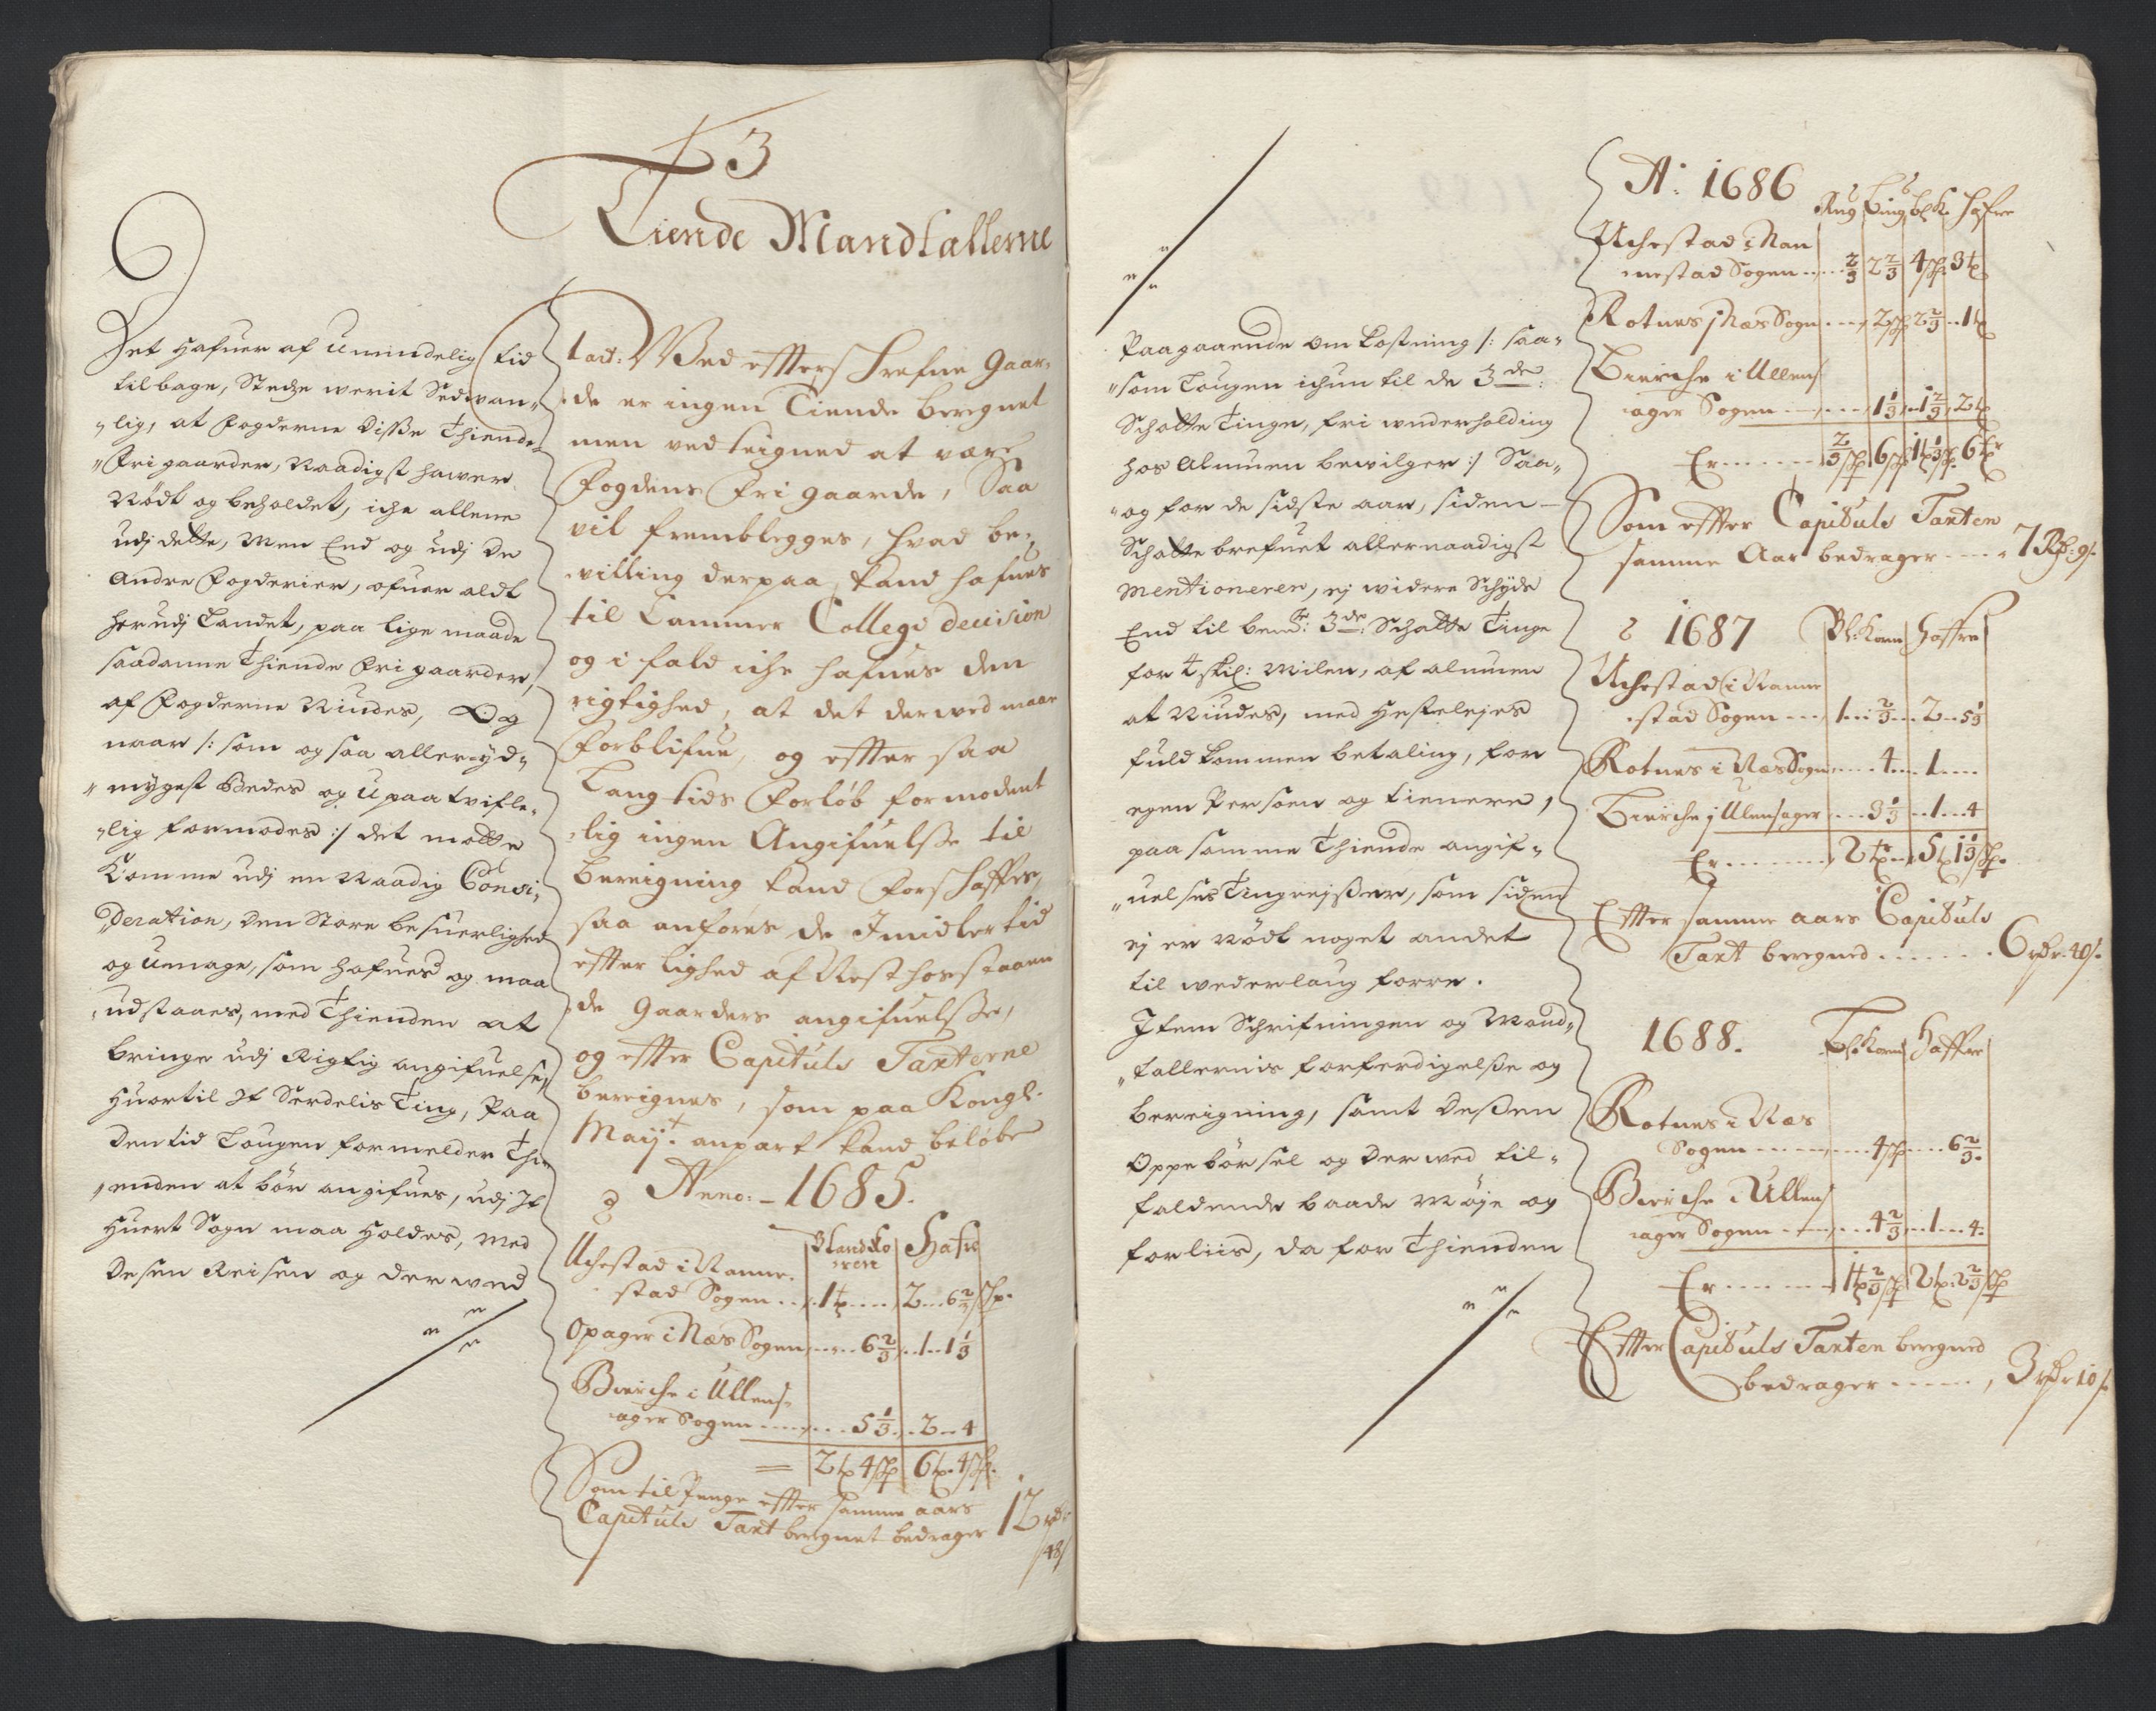 3
Tiende Mandtallerne
Det Hafuer af Umindelig tid
tilbage, Stedze werit Sedwan-
lig, at Fogderne Disse Thiende
Fri gaarder, Naadigst hawer
Nödt og beholdet, iche allene
udj dette, Men End og udj De
Andre Fogderier, ofuer aldt
her udj Landet, paa lige maade
saadanne Thiende Fri gaarder,
af Fogderne Niudes, Og
naar /: som og saa allerryd-
mygest Bedes og Upaatvifle-
lig formodes :/ det motte
Komme udj en Naadig Consi-
deration, Den Store besuerlighed
og Umage, som hafues og maa
udstaaes, med Thienden at
bringe udj Rigtig angifuelse,
Huortil It Serdelis Ting, Paa
Den tid Lougen formelder Thi-
enden at bör angifues, udj It
Huert Sogn maa Holdes, Med
Desen Reisen og Derwed
1 ad: Wed effterschrefne Gaar-
de er ingen Tiende beregnet
men ved teigned at være
Fogdens Fri gaarde, Saa
vil fremblegges, hvad be-
villing derpaa kand hafues
til Cammer Collegi decision
og i fald iche hafues den
rigtighed, at det derved maae
Forblifue, og effter saa
Lang tids Forlöb formodent
lig ingen Angifuelsse til
bereigning kand Forschaffes,
saa anföres de Imidlertid
effter lighed af Nest hosstaaen
de Gaarders angifuelsse,
og effter Capituls Taxterne
bereignes, som paa Kongl.
Maijt. anpart kand belöbe
Anno: - 1685.
Blandko
rn Hafre
Uchestad i Nanne-
stad Sogen .... 1 t .... 2 .. 6 2/3 sch.
Opager i Næs Sogen .... 6 2/3 .. 1 .. 1 1/3
Bierche i Ullens-
ager Sogen .... 5 1/3 .. 2 .. 4
= 2 t 4 sch 6 t. 4 sch.
Som til Penge effter samme aars
Capituls Taxt beregnet bedrager 12 rdr
48 s
Paagaaende Omkostning /: saa-
som Lougen ichun til de 3de
Schatte Tinge, fri underholding
hos Almuen bewilger :/ Saa-
og for de sidste aar, siden
Schatte brefuet allernaadigst
Mentionerer, ej widere Schyds
End til bemte: 3de: Schatte Tinge
for 4 skil: Milen, af almuen
at Niudes, med Hestelejes
fuldkommen betaling, for
egen Persoen og tienere,
paa samme Thiende angif-
uelses Tingrejsser, som siden
ej er Nödt noget andet
til wederlaug forre.
Item Schrifningen og Mand-
tallernis forferdigelsse og
bereigning, samt Dessen
Oppebörsel og Derwed til-
faldende baade Möje og
forliis, da for Thienden
Ao: 1686
Rug Biug bl K. Hafre
Uchestad i Nan
nestad Sogen .... 2/3 2 2/3 4 sch. 3 t
Rotnes i Næs Sogn .... 2 sch 2 2/3 .. 1 t
Bierche i Ullens
ager Sogen .... 1 1/3 .. 1 2/3 2 t
Er .... 2/3 sch 6 sch 1 t 1/3 sch. 6 tr
Som effter Capituls Taxten
samme Aar bedrager .... 7 Rd: 9 s.
1687 Bl: Korn Haffre
Uchestad i Nanne
stad Sogen ... 1 .. 2/3 .. 2 .. 5 1/3
Rotnes i Næs Sogn .... 4 .. 1 ....
Bierche j Ulensager ... 3 1/3 .. 1 .. 4
Er .... 2 tr .. 5 t 1 1/3 sch.
Effter samme aars Capituls
Taxt beregned ...... 6 rdr. 40 s.
1688. Bl: Korn Haffre
Rotnes i Næs
Sogen .... 4 sch .... 6 2/3.
Bierche i Ullens
ager Sogen .... 4 2/3 .. 1 .. 4.
Er .... 1 t 2/3 sch 2 t. 2 2/3 sch
Effter Capituls Taxten beregned
bedrager .... 3 rdr 10 s.